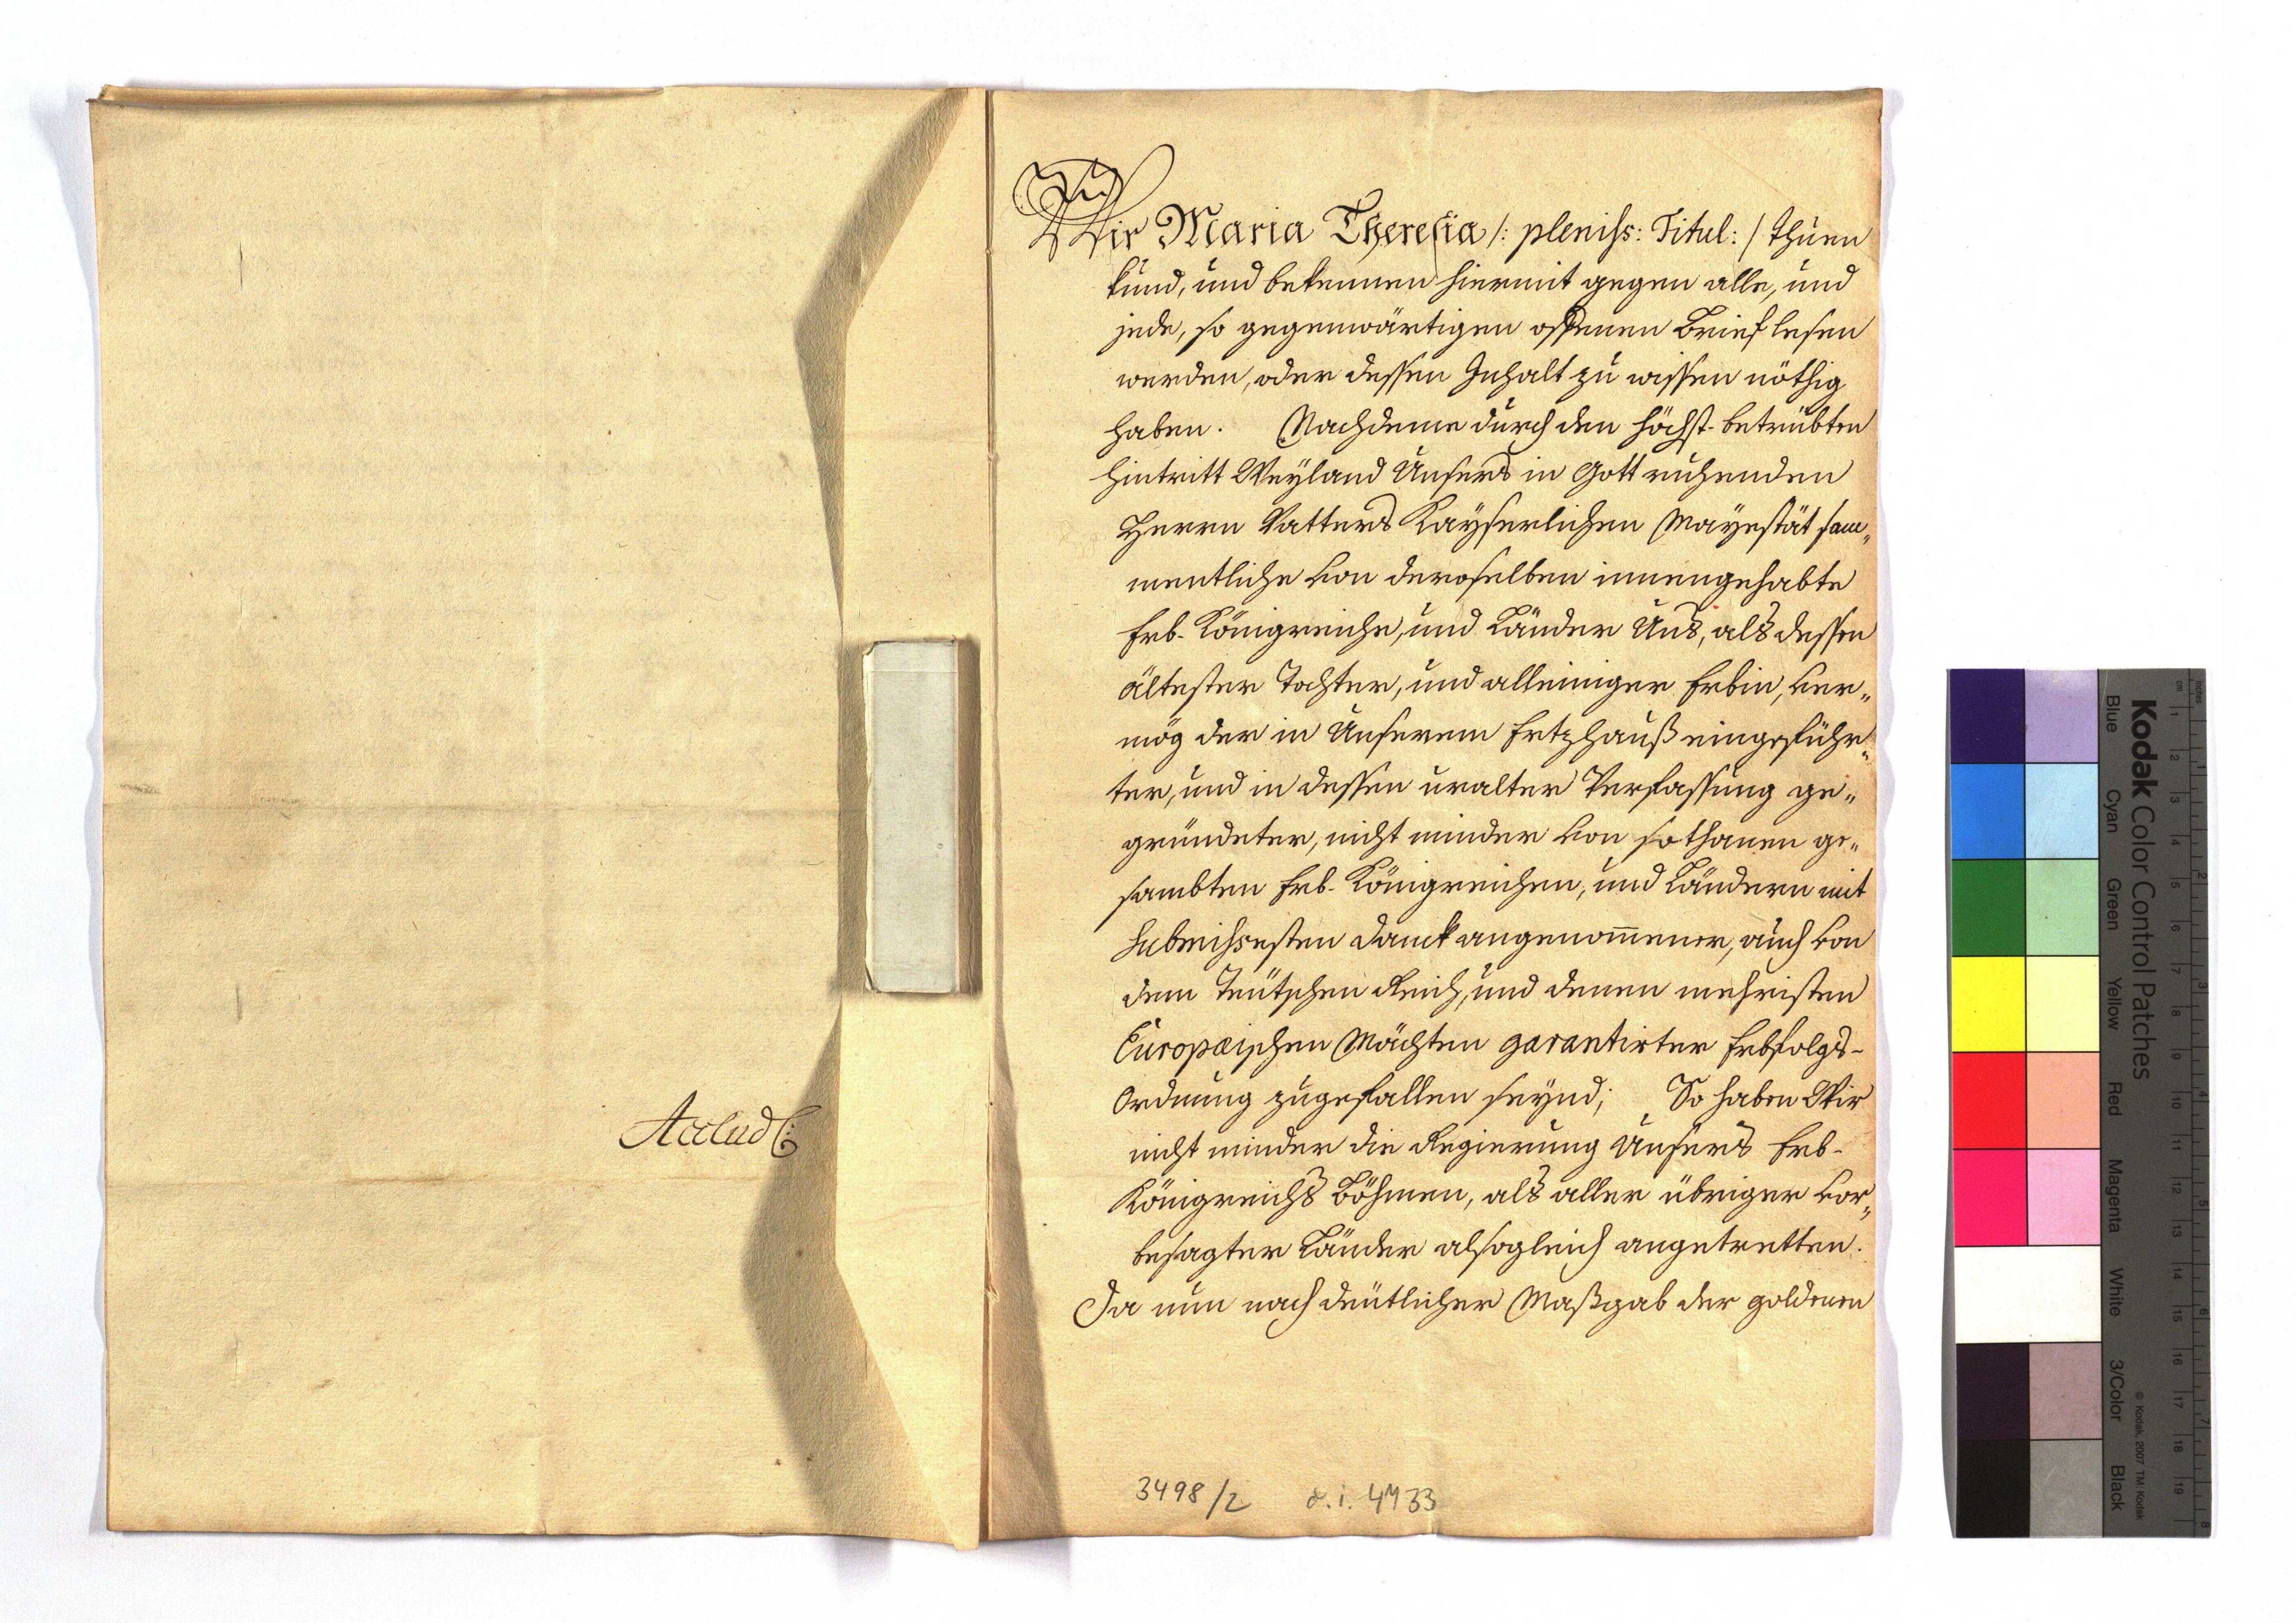 Acclud:
Wir Maria Theresia /: pleniss: Titul: / thuen
kund, und bekennen hiermit gegen alle, und
jede, so gegenwärtigen offenen Brief lesen
werden, oder dessen Inhalt zu wissen nöthig
haben. Nachdeme durch den höchst-betrübten
Hintritt Weyland Unsers in Gott ruhenden
Herrn Vatters Kayserlichen Mayestät sam„
mentliche von deroselben innengehabte
Erb-Königreiche, und Länder Uns, als dessen
ältester Tochter, und alleiniger Erbin, ver„
mög der in Unserem Ertzhauß eingeführ„
ter, und in dessen uralter Verfassung ge„
gründeter, nicht minder von sothanen ge„
sambten Erb-Königreichen, und Ländern mit
submissesten Danck angenommener, auch von
dem Teütschen Reich, und denen mehristen
Europæischen Mächten garantirter Erbfolgs-
Ordnung zugefallen seynd; So haben Wir
nicht minder die Regierung Unsers Erb-
Königreichs Böhmen, als aller übriger vor„
besagter Länder alsogleich angetretten.
Da nun nach deütlicher Maßgab der goldenen
3498/2 d. i. 4733
Kodak Color Control Patches
Blue Cyan Green Yellow Red Magenta White 3/Color Black
© Kodak, 2007 TM: Kodak
inches 1 2 3 4 5 6 7 8
cm 1 2 3 4 5 6 7 8 9 10 11 12 13 14 15 16 17 18 19